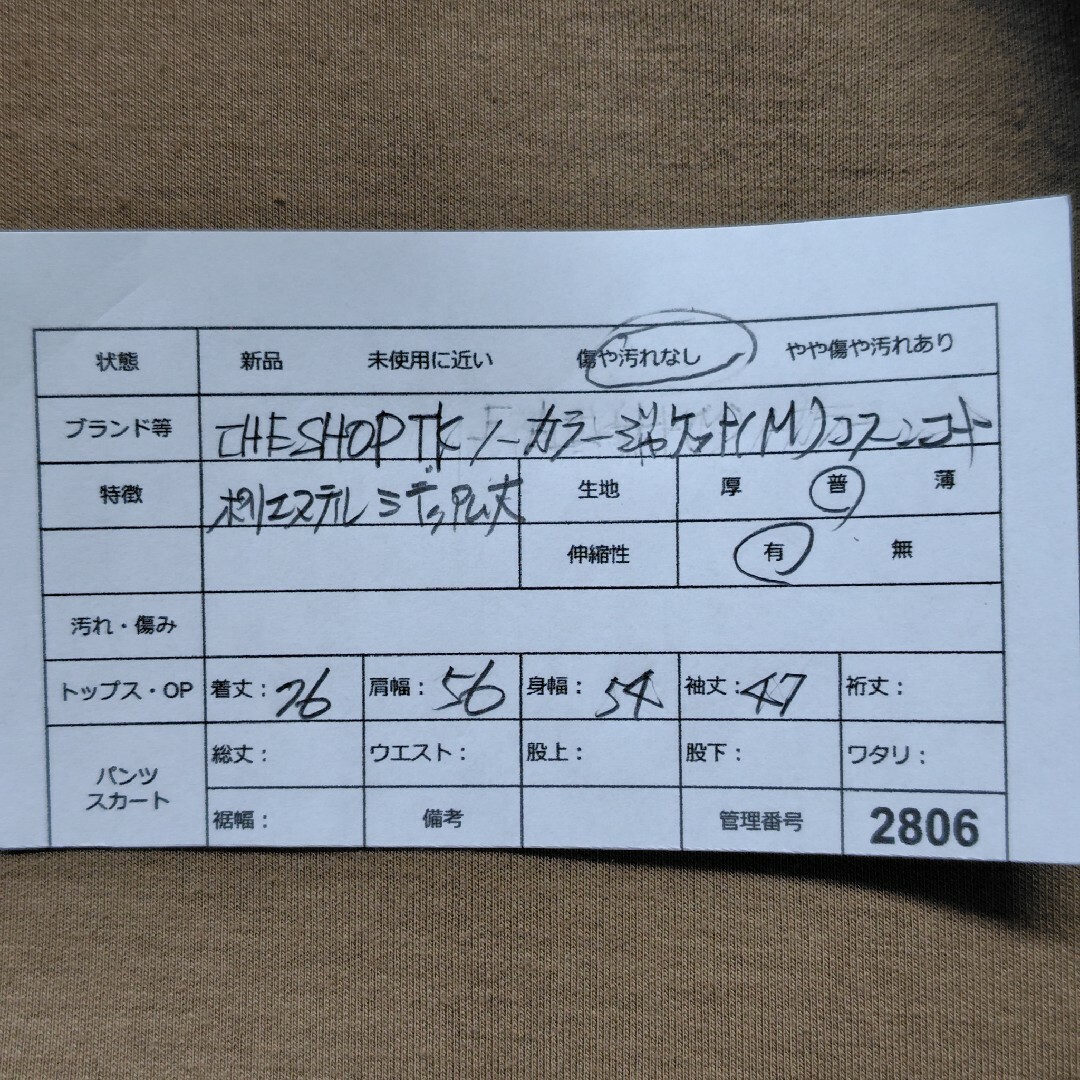 状態 新品 未使用に近い 傷や汚れなし やや傷や汚れあり
ブランド等 THE SHOP TK ノーカラージャケット(M)
特徴 ポリエステル ミディアム丈 生地 厚 普 薄
伸縮性 有 無
汚れ・傷み
トップス・OP 着丈: 76 肩幅: 56 身幅: 54 袖丈: 47 裄丈:
パンツ スカート 総丈: ウエスト: 股上: 股下: ワタリ:
裾幅: 備考 管理番号 2806